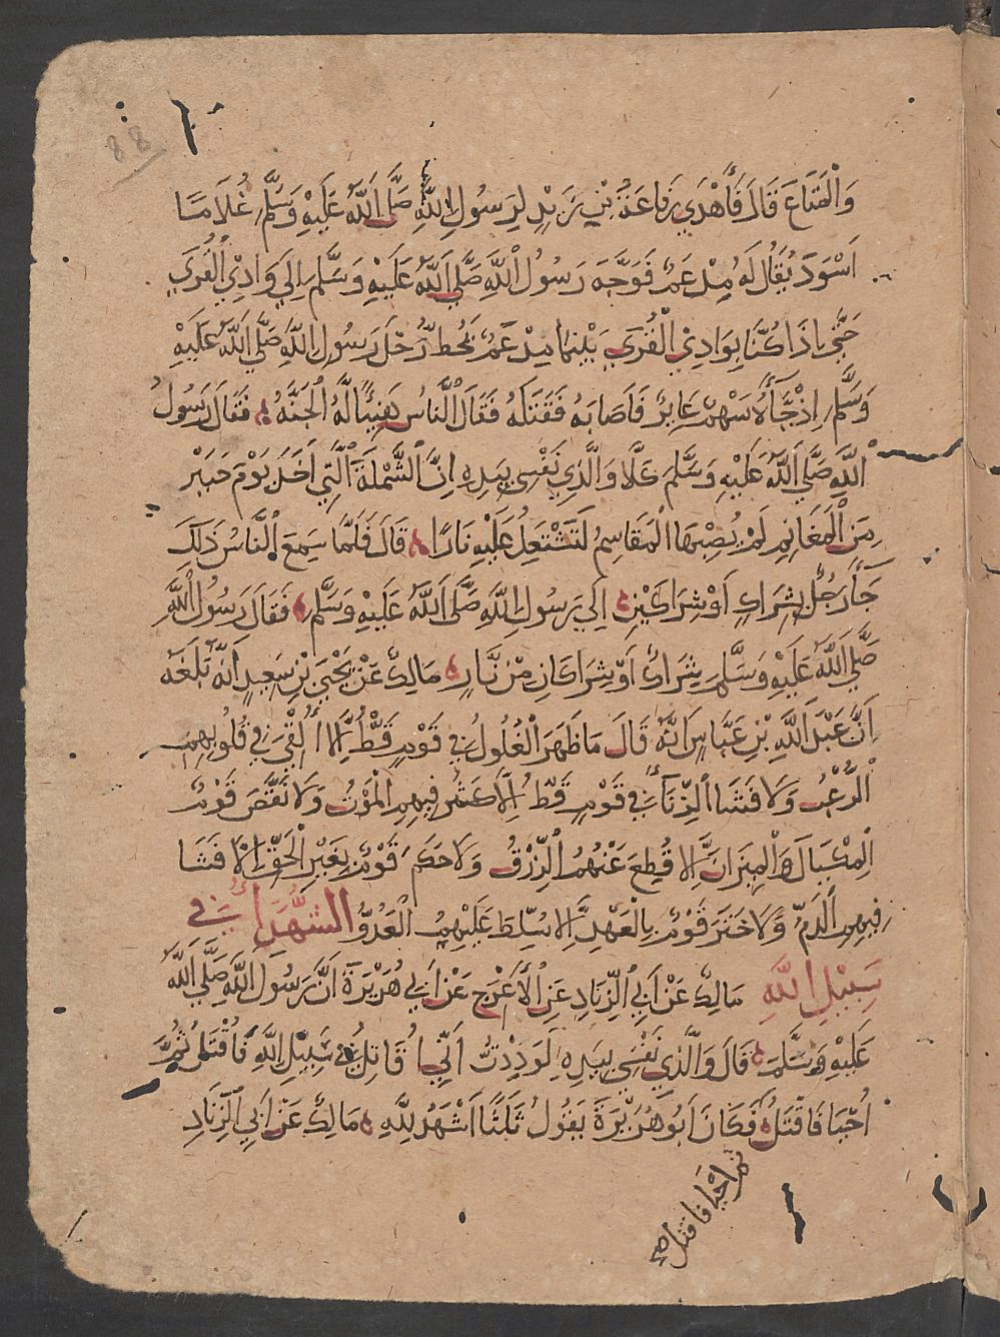 88
وَالْمَتَاعَ قَالَ فَأَهْدَي رِفَاعَةُ بْنُ زَيْدٍ لِرَسُولِ اللَّهِ صَلَّي اللَّهُ عَلَيْهِ وَسَلَّمَ غُلَامًا
اَسْوَدَ يُقَالُ لَهُ مِدْعَمٌ فَوَجَّهَ رَسُولُ اللَّهِ صَلَّي اللَّهُ عَلَيْهِ وَسَلَّمَ إِلَي وَادِي الْقُرَي
حَتَّي إِذَا كُنَّا بِوَادِي الْقُرَي بَيْنَمَا مِدْعَمٌ يَحُطُّ رَحْلَ رَسُولِ اللَّهِ صَلَّي اللَّهُ عَلَيْهِ
وَسَلَّمَ إِذْ جَأَهُ سَهْمٌ عَايِرٌ فَاَصَابَهُ فَقَتَلَهُ فَقَالَ النَّاسُ هَنِيئًا لَهُ الْجَنَّهُ فَقَالَ رَسُولُ
اللَّهِ صَلَّي اللَّهُ عَلَيْهِ وَسَلَّمَ كَلَّا وَالَّذِي نَفْسِي بِيَدِهِ اِنَّ الشَّمْلَةَ الَّتِي اَخَذَ يَوْمَ خَيْبَرْ
مِنَ الْمَغَانِمِ لَمْ يُصِبْهَا الْمَقَاسِمُ لَتَشْتَعِلُ عَلَيْهِ نَارًا قَالَ فَلَمَّا سَمِعَ النَّاسُ ذَلِكَ
جَأَ رَجُلٌ بِشِرَاكٍ اَوْ شِرَاكَيْنِ اِلَي رَسُولِ اللَّهِ صَلَّي اللَّهُ عَلَيْهِ وَسَلَّمَ فَقَالَ رَسُولُ اللَّهِ
صَلَّي اللَّهُ عَلَيْهِ وَسَلَّمَ شِرَاكٌ اَوْ شِرَاكَانِ مِنْ نَّارٍ مَالِكٌ عَنْ يَحْيَي بْنِ سَعِيدٍ اَنَّهُ بَلَغَهُ
اَنَّ عَبْدَ اللَّهِ بْنِ عَبَّاسٍ اَنَّهُ قَالَ مَا ظَهَرَ الْغُلُولُ فِي قَوْمٍ قَطُّ اِلَّا أُلْقِيَ فِي قُلُوبِهِمُ
الرُّعْبُ وَلَا فَشَا الزِّنَأُ فِي قَوْمٍ قَطُّ اِلَّا كَثُرَ فِيهِمِ الْمَوْتُ وَلَا نَقَّصَ قَوْمٌ
الْمِكْيَالَ وَالْمِيزَانَ اِلَّا قُطِعَ عَنْهُمُ الرِّزْقُ وَلَا حَكَمَ قَوْمٌ بِغَيْرِ الْحَقِّ اِلَّا فَشَا
فِيهِمِ الدَّمُ وَلَا خَتَرَ قَوْمٌ بِالْعَهْدِ اِلَّا سُلِّطَ عَلَيْهِمُ الْعَدُوُّ الشُّهَدَأُ فِي
سَبِيْلِ اللَّهِ مَالِكٌ عَنْ اَبِي الزِّنَادِ عَنِ الْأَعْرَجِ عَنْ اَبِي هُرَيْرَةَ اَنَّ رَسُولَ اللَّهِ صَلَّي اللَّهُ
عَلَيْهِ وَسَلَّمَ قَالَ وَالَّذِي نَفْسِي بِيَدِهِ لَوَدِدْتُ اَنِّي أُقَاتِلُ فِي سَبِيْلِ اللَّهِ فَأُقْتَلُ ثُمَّ
اُحْيَا فَاُقْتَلُ فَكَانَ اَبُو هُرَيْرَةَ يَقُولُ ثَلَثًا اَشْهَدُ لِلَّهِ مَالِكٌ عَنْ اَبِي الزِّنَادِ
ثم احيا فاقتل صح